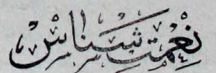 نعمت شناس